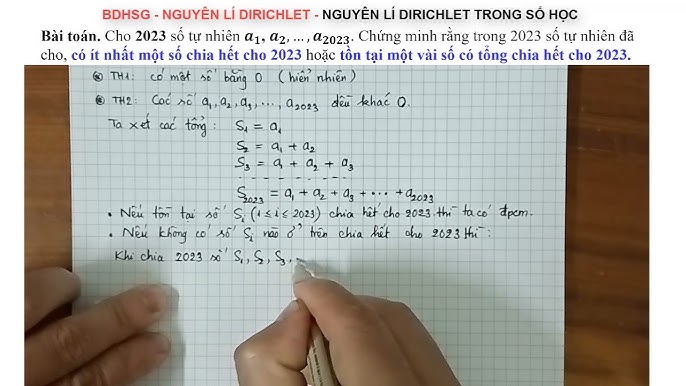 BDHSG - NGUYÊN LÍ DIRICHLET - NGUYÊN LÍ DIRICHLET TRONG SỐ HỌC
Bài toán. Cho 2023 số tự nhiên a₁, a₂, ..., a₂₀₂₃. Chứng minh rằng trong 2023 số tự nhiên đã
cho, có ít nhất một số chia hết cho 2023 hoặc tồn tại một vài số có tổng chia hết cho 2023.
TH1: có một số bằng 0 (hiển nhiên)
TH2: Các số a₁, a₂, a₃, ..., a₂₀₂₃ đều khác 0.
Ta xét các tổng: S₁ = a₁
S₂ = a₁ + a₂
S₃ = a₁ + a₂ + a₃
S₂₀₂₃ = a₁ + a₂ + a₃ + ... + a₂₀₂₃
• Nếu tồn tại số Sᵢ (1 ≤ i ≤ 2023) chia hết cho 2023 thì ta có đpcm.
• Nếu không có số Sᵢ nào ở trên chia hết cho 2023 thì:
Khi chia 2023 số S₁, S₂, S₃,